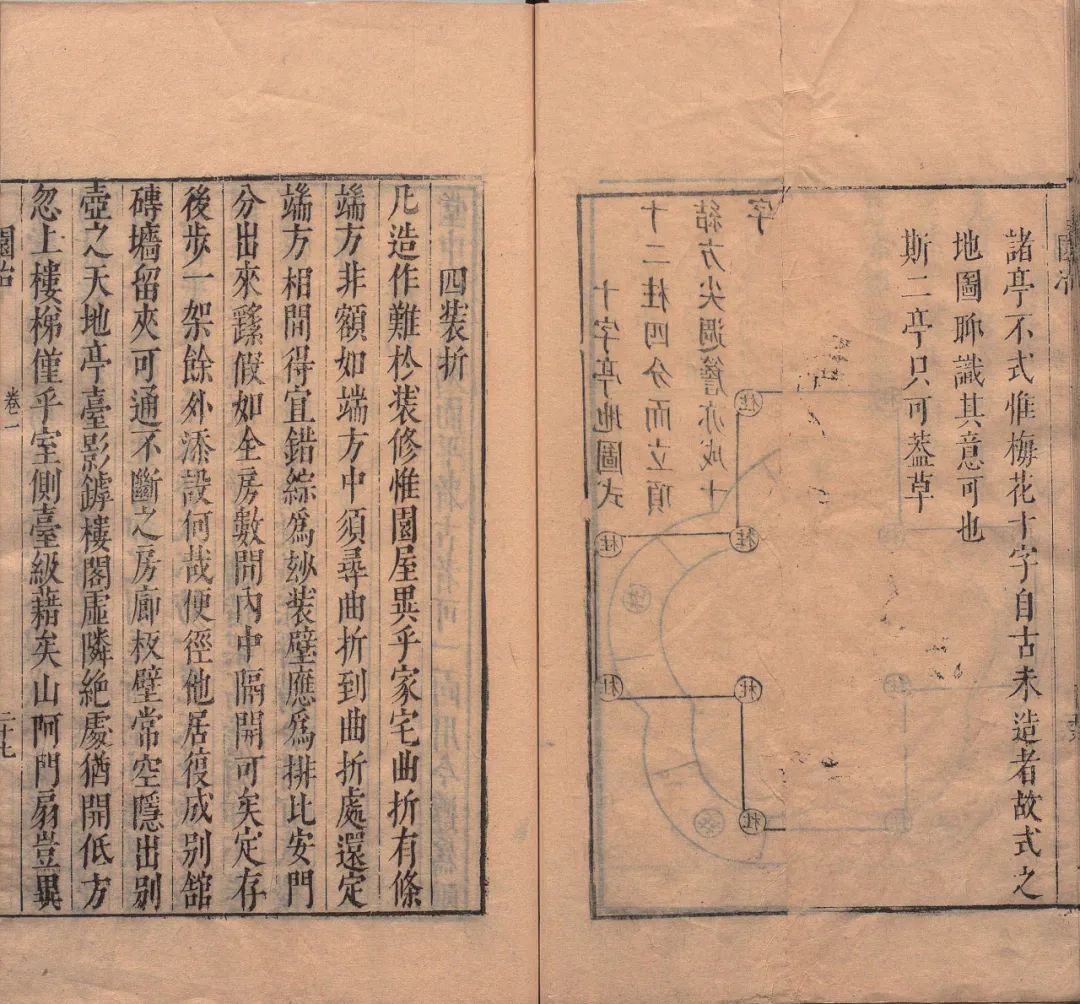 園冶
諸亭不式惟梅花十字自古未造者故式之
地圖聊識其意可也
斯二亭只可葢草
十字亭地圖式
十二柱四分而立頂
結方尖週簷亦成十
字
柱
柱
柱
柱
柱
柱
四裝折
凢造作難於裝修惟園屋異乎家宅曲折有條
端方非額如端方中須尋曲折到曲折處還定
端方相間得宜錯綜爲玅裝壁應爲排比安門
分出來繇假如全房數間內中隔開可矣定存
後步一架餘外添設何哉便徑他居復成別舘
磚墻留夾可通不斷之房廊板壁常空隱出別
壺之天地亭臺影罅樓閣虛隣絶處猶開低方
忽上樓梯僅乎室側臺級藉矣山阿門扇豈異
園冶
卷一
二十七